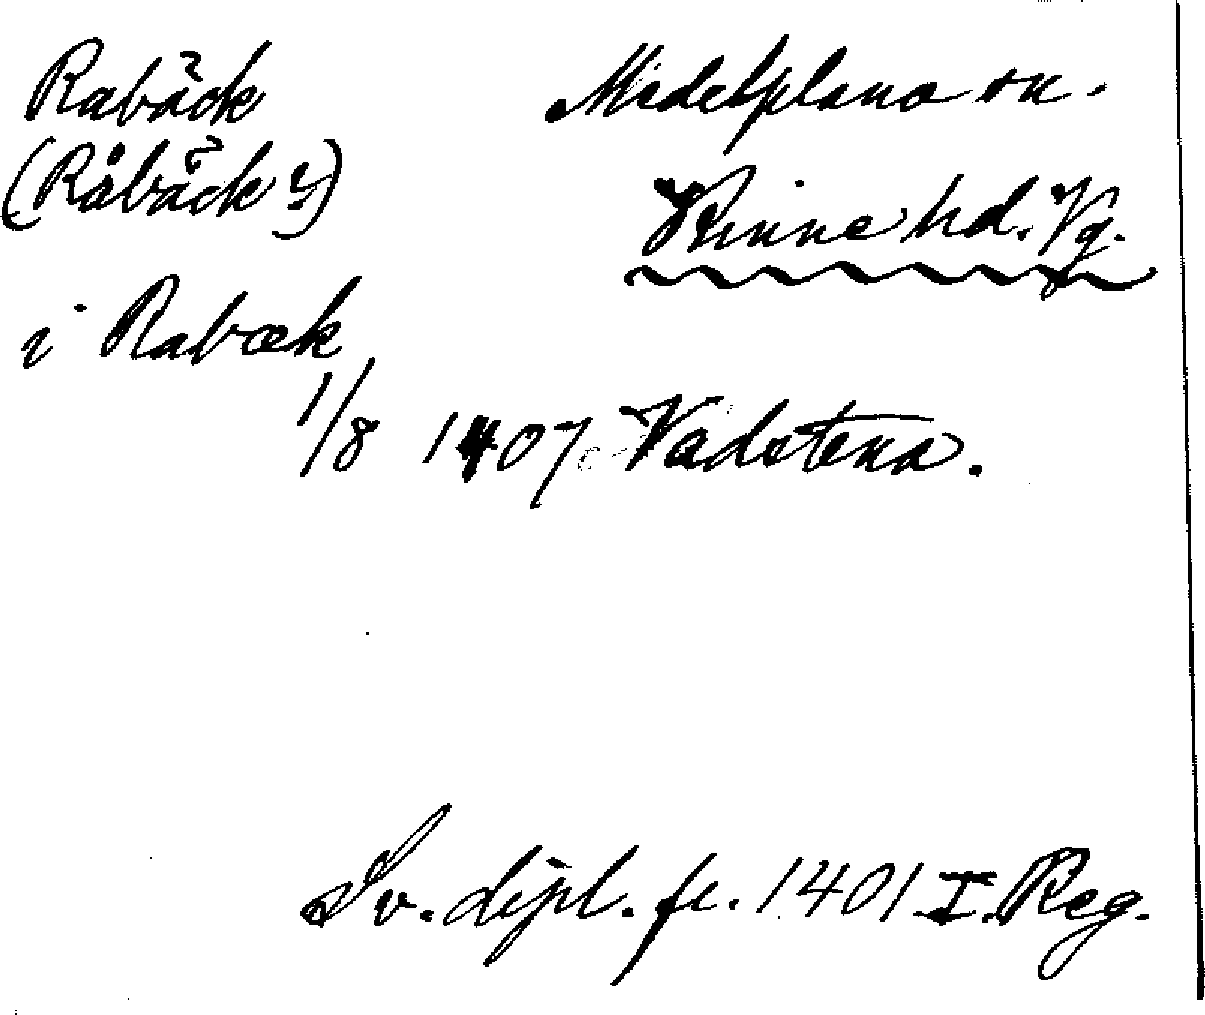 Rabäck Medelplana sn.
(Råbäck?)
Kinne hd. Vg.
i Rabæk
1/8 1407 Vadstena.
Sv. dipl. fr. 1401 I. Reg.